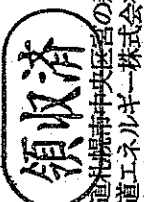 領収済
道札幌市中央区宮の
道エネルギー株式会